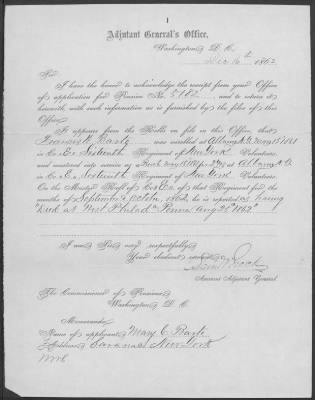 1
Adjutant General's Office,
Washington, D. C.
Dec 16th 1862
Sir:
I have the honor to acknowledge the receipt from your Office
of application for Pension No. 5182, and to return it
herewith, with such information as is furnished by the files of this
Office.
It appears from the Rolls on file in this Office, that
was enrolled at Albany N.Y.
in Co. E, Sixteenth Regiment of New York Volunteers,
and mustered into service as a at Albany N.Y.
in Co. E, Sixteenth Regiment of New York Volunteers.
On the Muster Roll of Co. E, of that Regiment, for the
months of September & October, 1862, he is reported as having
Died at West Philad. Penna Aug 2 1862
I am, Sir, very respectfully,
Your obedient servant,
Assistant Adjutant General.
The Commissioner of Pensions,
Washington, D. C.
Memoranda:
Name of applicant, Mary C.
Address, New York